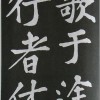 歌于塗
行者休